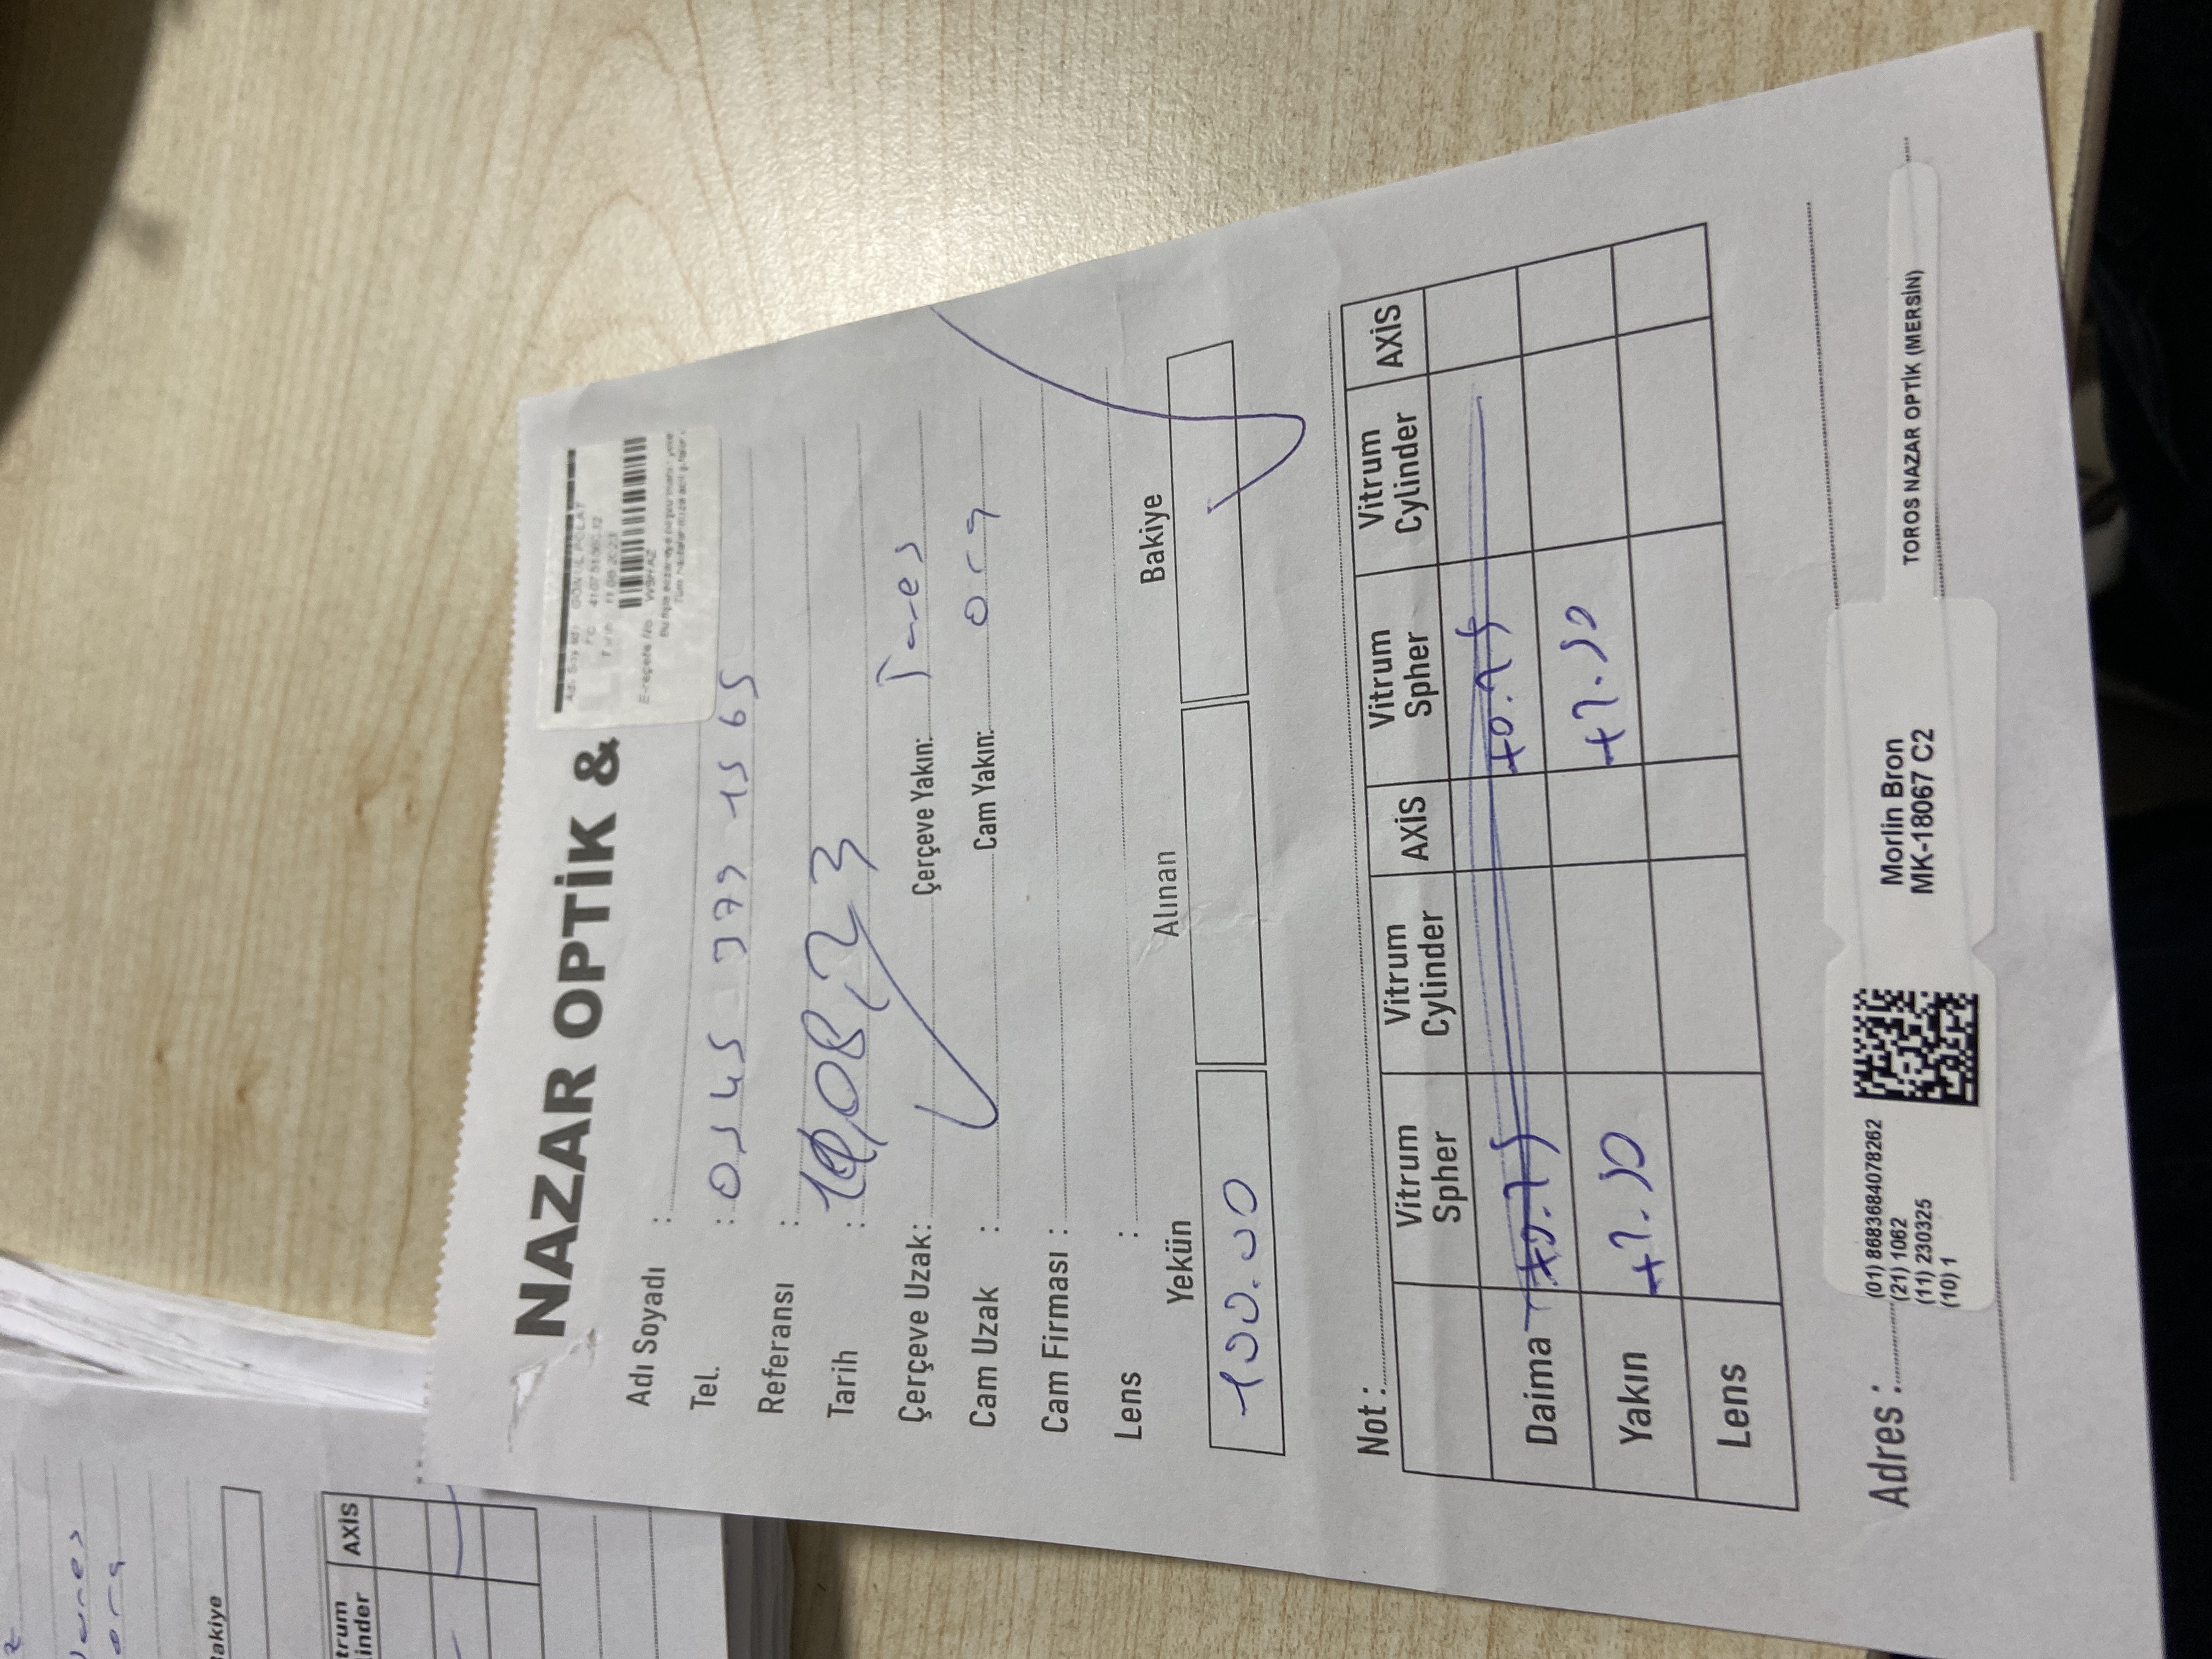 akiye
trum
linder
AXİS
NAZAR OPTİK &
GÖNÜL POLAT
11.08.2023
E-reçete No W9HAZ
Adı Soyadı :
Tel. : 0545 979 1565
Referansı :
Tarih : 11,08,23
Çerçeve Uzak: Çerçeve Yakın:
Cam Uzak : Cam Yakın: org
Cam Firması :
Lens :
Yekün Alınan Bakiye
100.00
Not :
Vitrum Spher Vitrum Cylinder AXİS Vitrum Spher Vitrum Cylinder AXİS
Daima +0.75 +0.75
Yakın
Lens
Adres :
(01) 8683684078262
(21) 1062
(11) 230325
(10) 1
Morlin Bron
MK-18067 C2
TOROS NAZAR OPTİK (MERSİN)